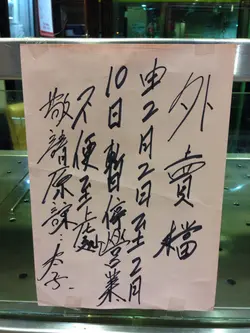 外賣檔
由2月2日至2月
10日暫停營業
不便至處
敬請原諒.